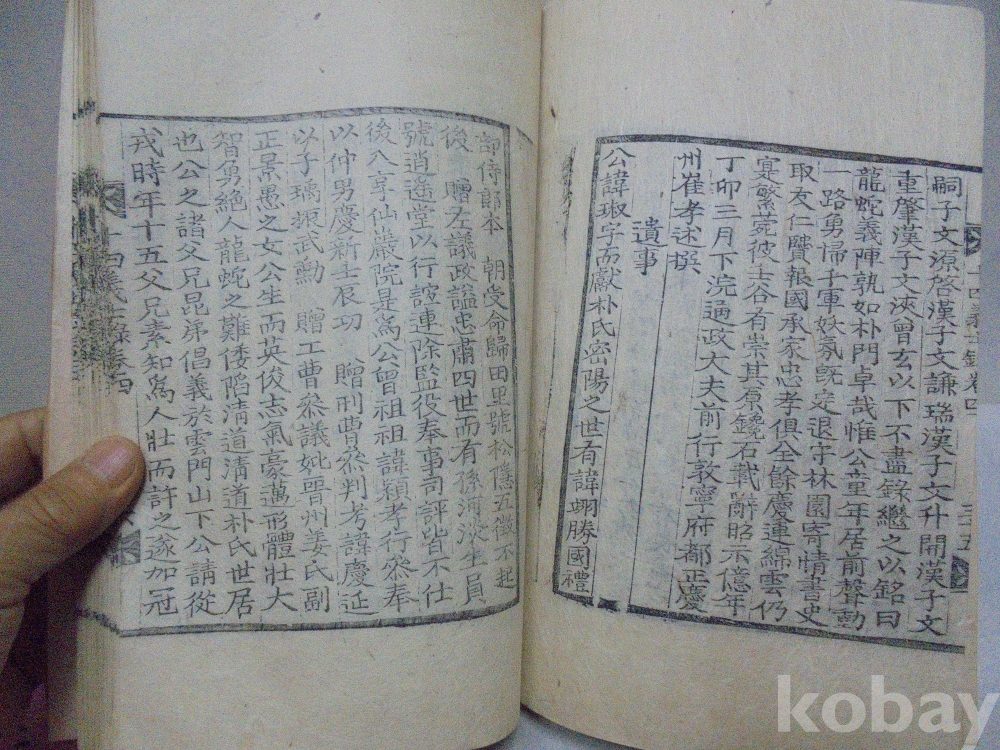 嗣子文源啓漢子文謙瑞漢子文升開漢子文
重肇漢子文浹曾玄以下不盡錄繼之以銘曰
龍蛇義陣孰如朴門卓哉惟公童年居前聲動
一路勇帰千軍妖氛旣定退守林園寄情書史
取友仁賢報國承家忠孝俱全餘慶連綿雲仍
寔繁菀彼士谷有崇其原鑱石載辭昭示億年
丁卯三月下浣通政大夫前行敦寧府都正慶
州崔孝述撰
遺事
公諱琡字而獻朴氏密陽之世有諱翊勝國禮
部侍郎本 朝受命歸田里號松隱五徵不起
後 贈左議政謚忠肅四世而有孫河淡生員
號逍遙堂以行誼連除監役奉事司評皆不仕
後入享仙巖院是爲公曾祖祖諱穎孝行叅奉
以仲男慶新壬辰功 贈刑曹叅判考諱慶延
以子瑀振武勳 贈工曹叅議妣晋州姜氏副
正景愚之女公生而英俊志氣豪邁形體壯大
智勇絶人龍蛇之難倭陷淸道淸道朴氏世居
也公之諸父兄昆弟倡義於雲門山下公請從
戎時年十五父兄素知爲人壯而許之遂加冠
十四義士錄卷四
十四義士錄卷四
kobay